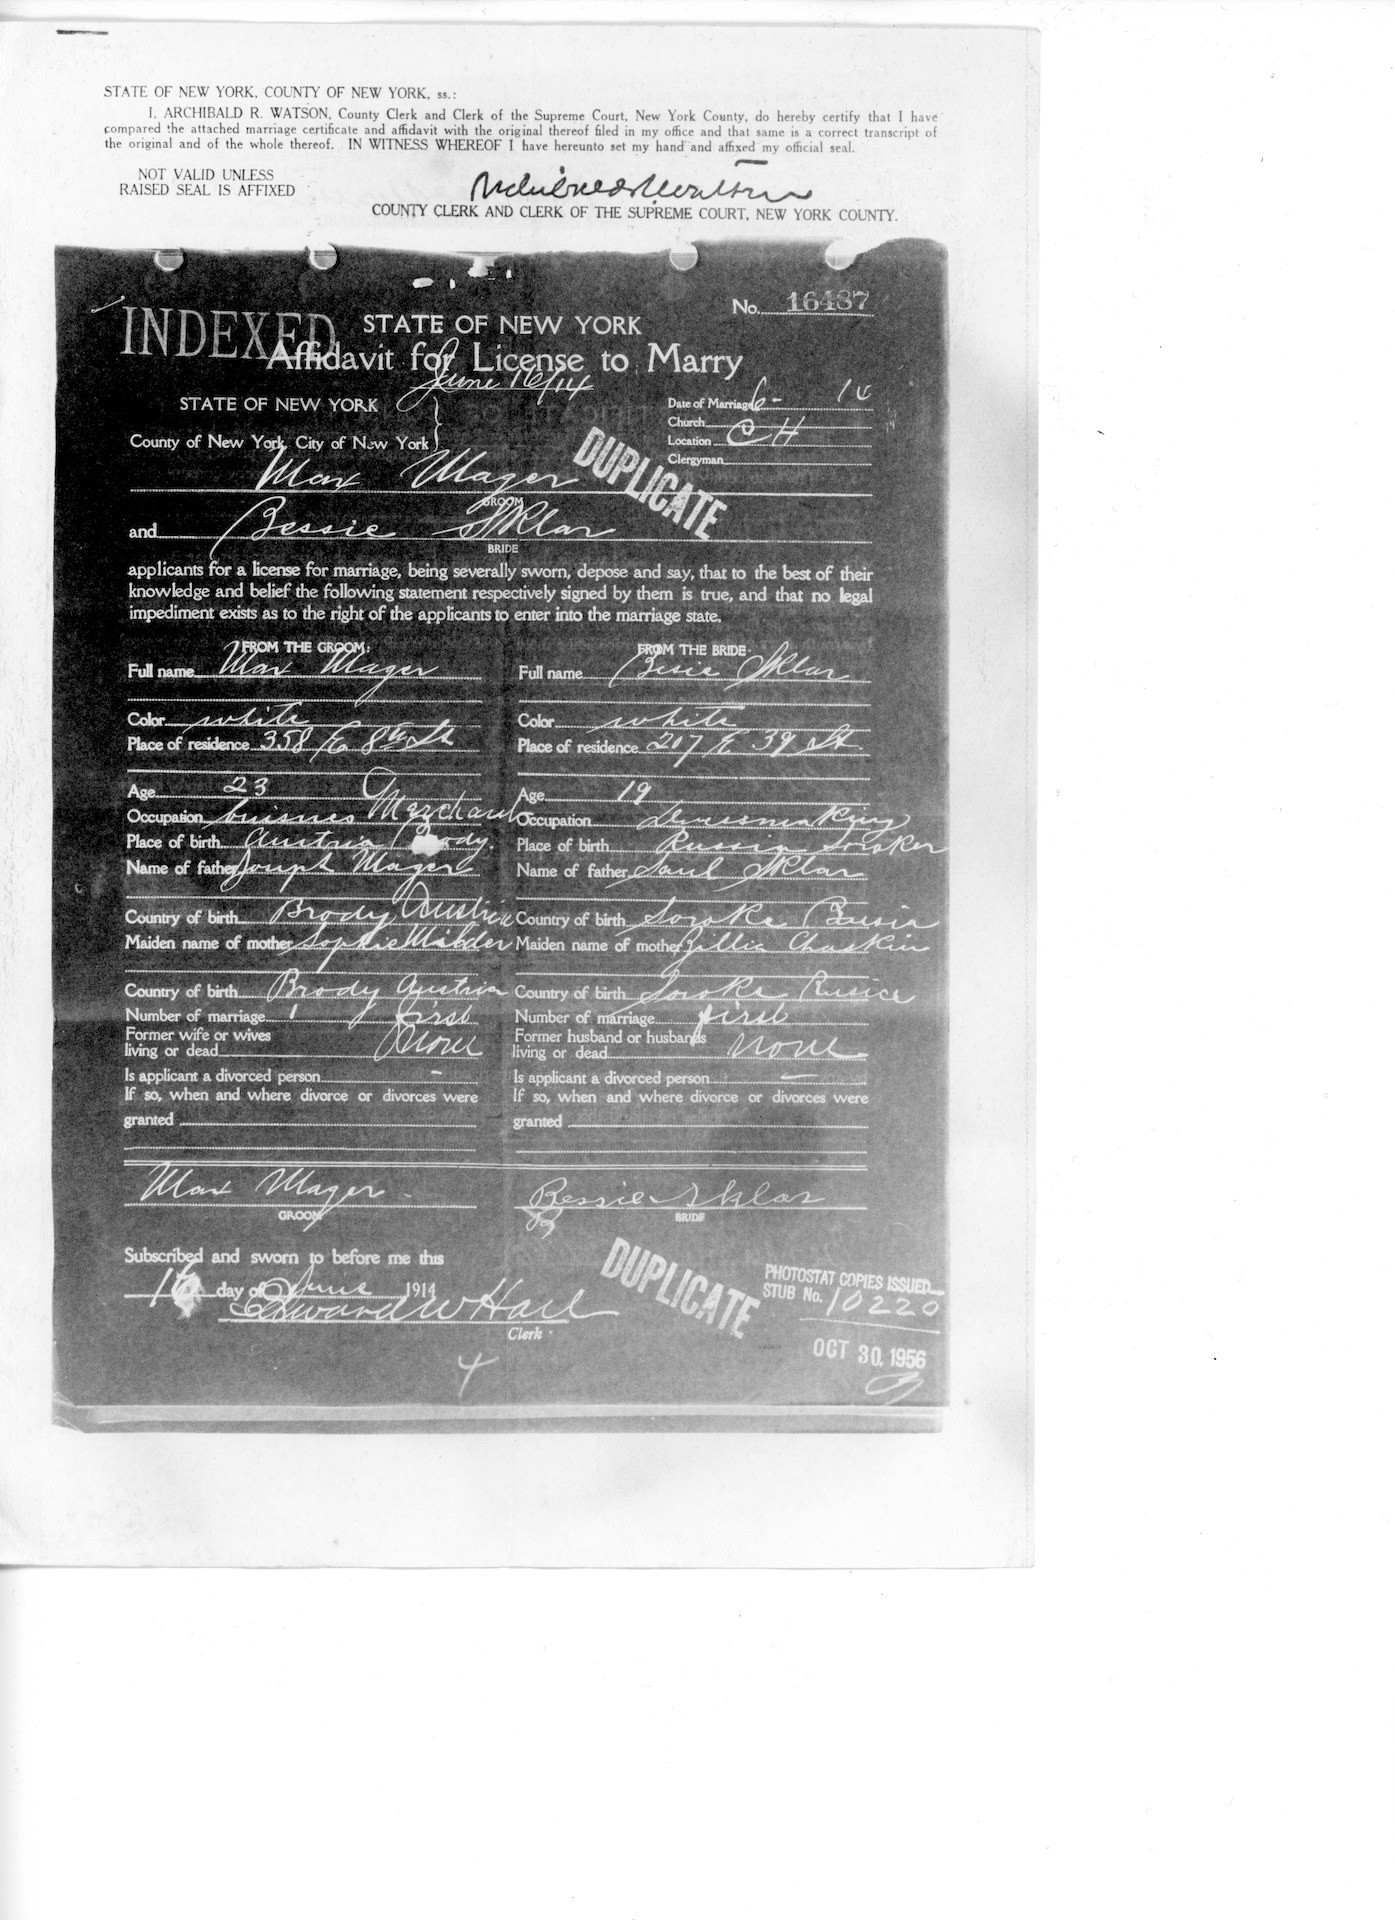 STATE OF NEW YORK, COUNTY OF NEW YORK, ss.:
I, ARCHIBALD R. WATSON, County Clerk and Clerk of the Supreme Court, New York County, do hereby certify that I have
compared the attached marriage certificate and affidavit with the original thereof filed in my office and that same is a correct transcript of
the original and of the whole thereof. IN WITNESS WHEREOF I have hereunto set my hand and affixed my official seal.
NOT VALID UNLESS
RAISED SEAL IS AFFIXED
Archibald R Watson
COUNTY CLERK AND CLERK OF THE SUPREME COURT, NEW YORK COUNTY.
No. 16487
INDEXED
STATE OF NEW YORK
Affidavit for License to Marry
June 16/14
STATE OF NEW YORK
County of New York, City of New York
Date of Marriage 6- 14
Church
Location C H
Clergyman
DUPLICATE
Max Mager
GROOM
and Bessie Sklar
BRIDE
applicants for a license for marriage, being severally sworn, depose and say, that to the best of their
knowledge and belief the following statement respectively signed by them is true, and that no legal
impediment exists as to the right of the applicants to enter into the marriage state.
FROM THE GROOM:
Full name Max Mager
Color white
Place of residence 358 E 8th St
Age 23
Occupation buisnes Merchant
Place of birth Austria Brody.
Name of father Joseph Mager
Country of birth Brody Austria
Maiden name of mother Sophie
Country of birth Brody Austria
Number of marriage 1 first
Former wife or wives
living or dead None
Is applicant a divorced person -
If so, when and where divorce or divorces were
granted
FROM THE BRIDE:
Full name Besie Sklar
Color white
Place of residence 207 E 39 St.
Age 19
Occupation Dressmaking
Place of birth Russia
Name of father Saul Sklar
Country of birth Soroke
Maiden name of mother Zillia Chaskin
Country of birth Soroke
Number of marriage first
Former husband or husbands
living or dead none
Is applicant a divorced person —
If so, when and where divorce or divorces were
granted
Max Mager
GROOM
Bessie Sklar
BRIDE
Subscribed and sworn to before me this
16 day of June 1914
Edward W Hart
Clerk
4
DUPLICATE
PHOTOSTAT COPIES ISSUED
STUB No. 10220
OCT 30, 1956